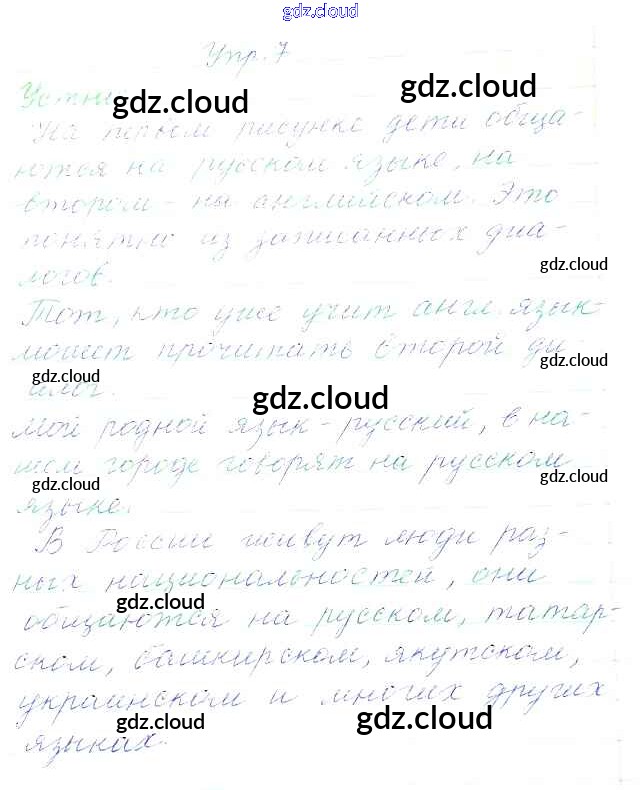 gdz.cloud
Упр. 7
Устно
gdz.cloud
gdz.cloud
На первом рисунке дети обща-
ются на русском языке, на
втором - на английском. Это
понятно из записанных диа-
логов.
gdz.cloud
Тот, кто уже учит англ. язык-
может прочитать второй ди-
gdz.cloud
gdz.cloud
алог.
gdz.cloud
Мой родной язык - русский, в на-
шем городе говорят на русском
gdz.cloud
gdz.cloud
языке.
В России живут люди раз-
ных национальностей, они
gdz.cloud
общаются на русском, татар-
ском, башкирском, якутском,
украинском и многих других
gdz.cloud
gdz.cloud
языках.